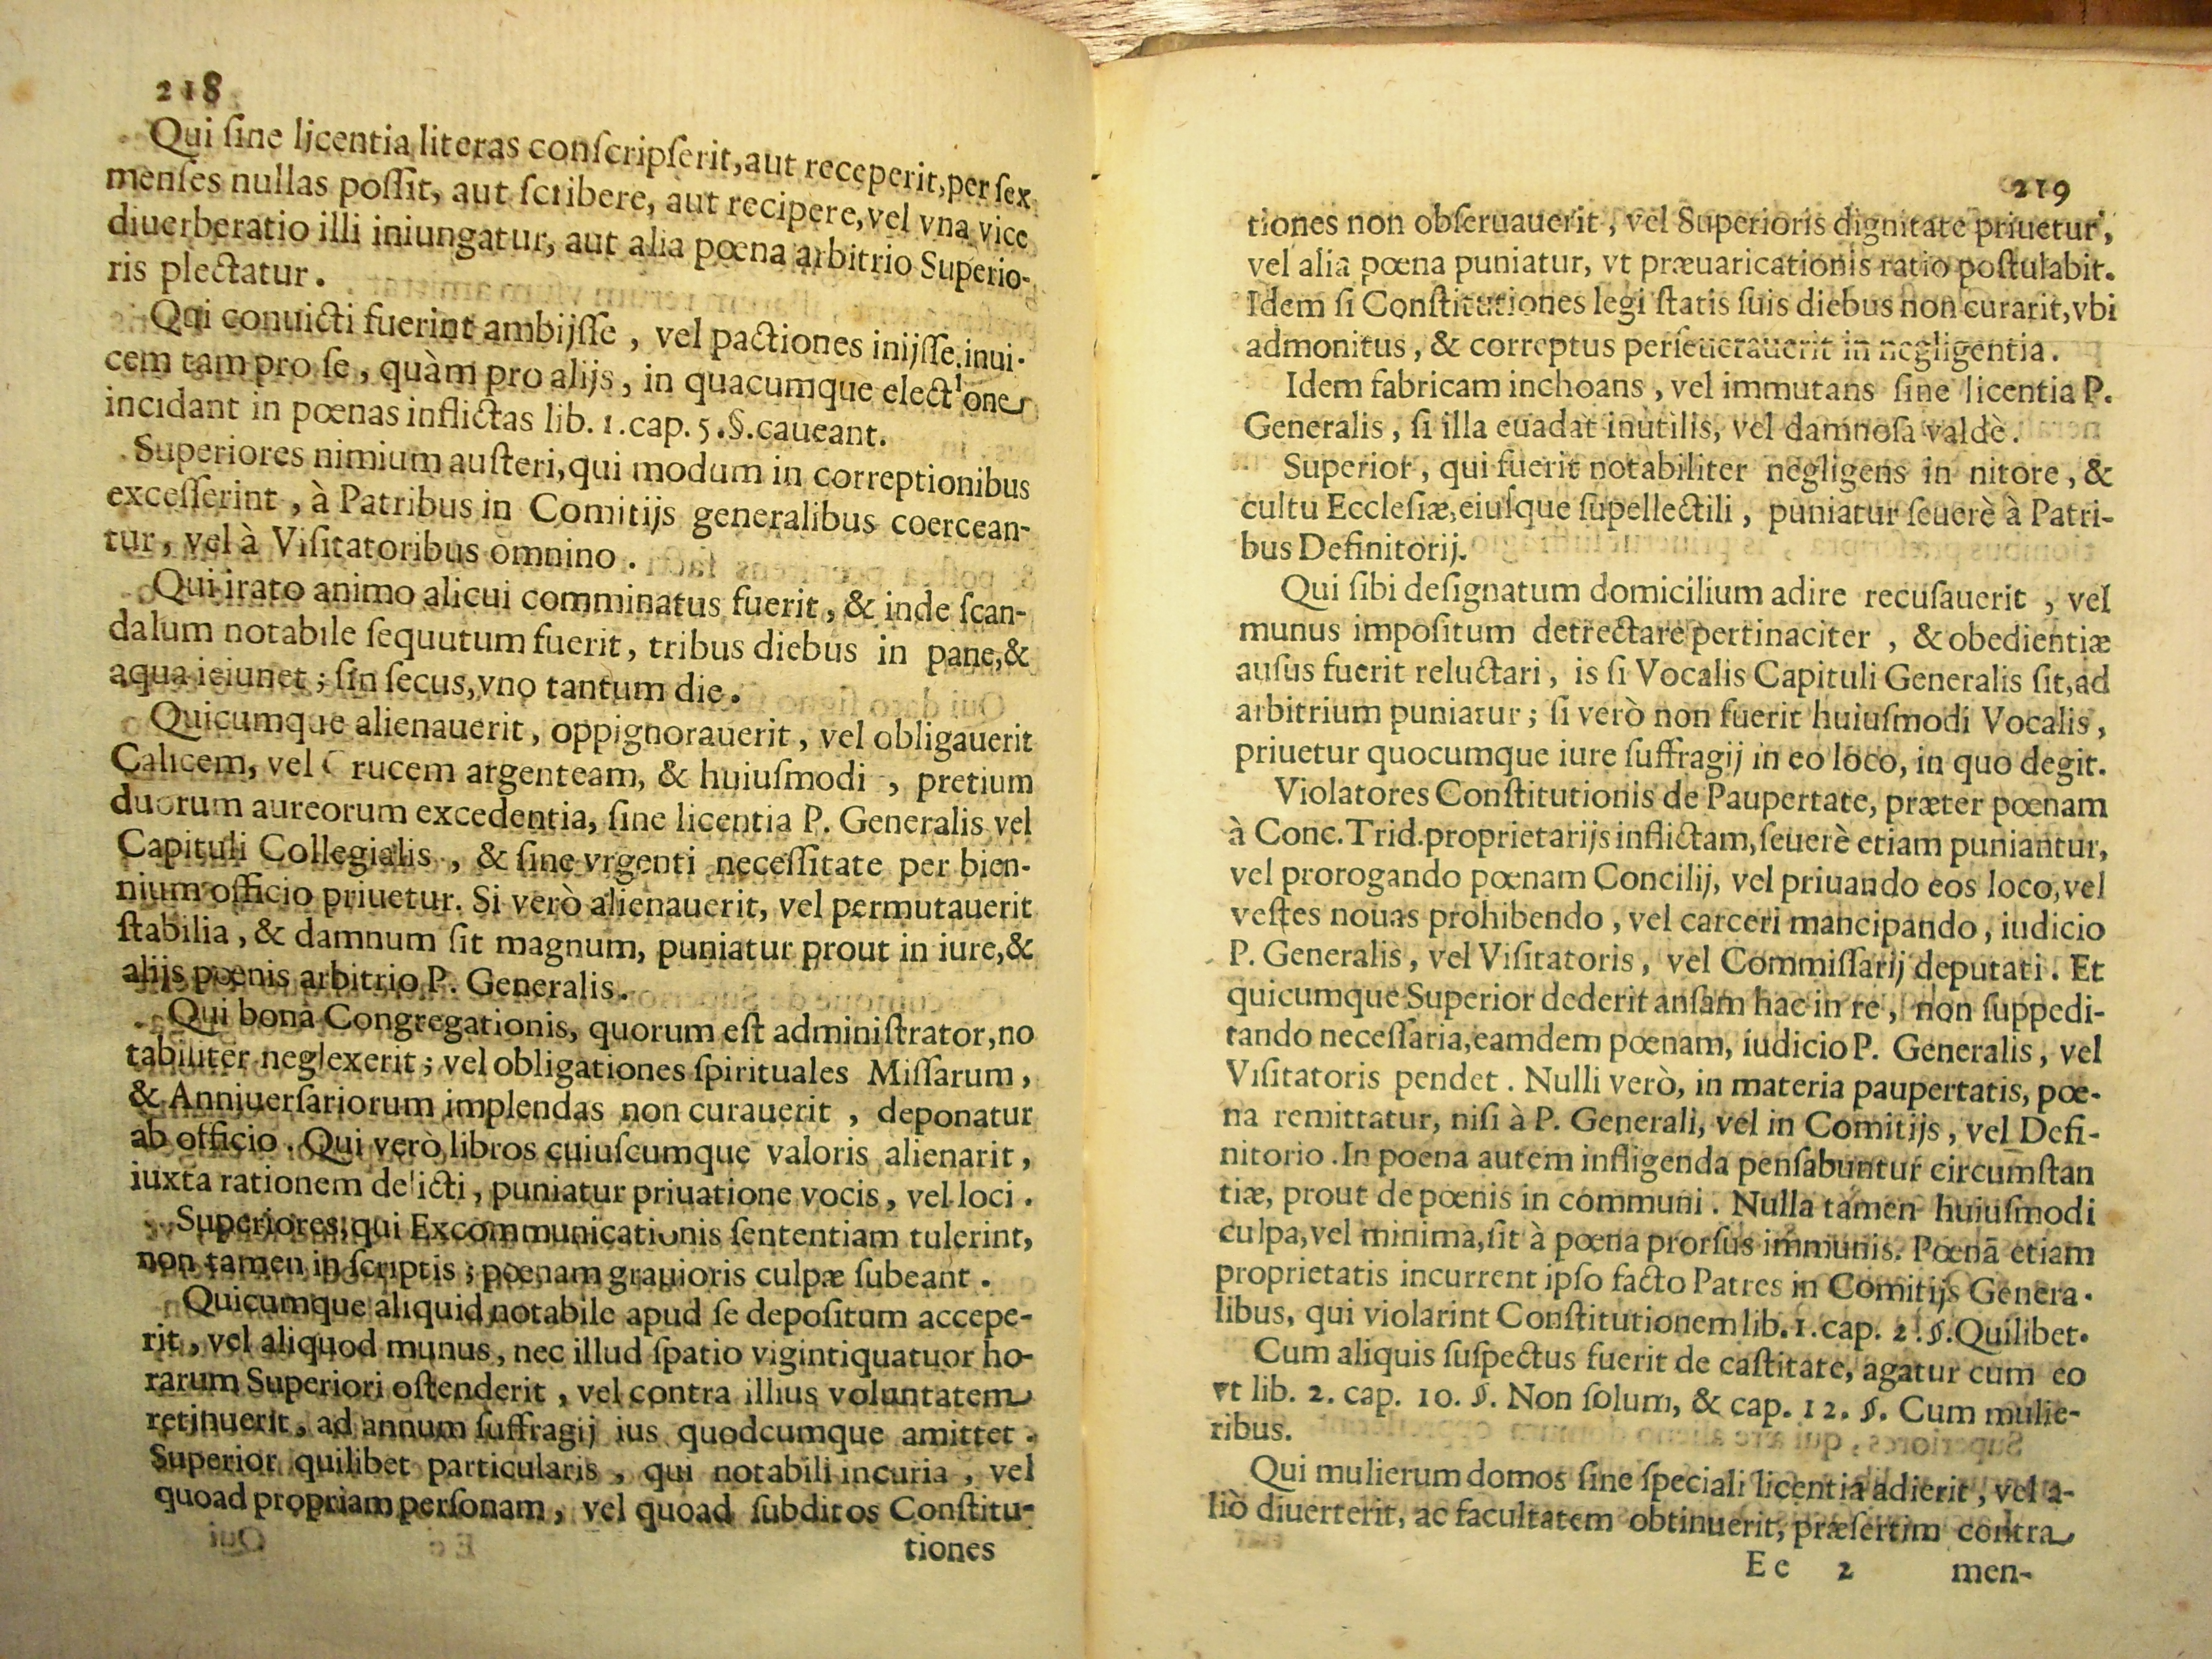 218
Qui ſine licentia literas conſcripſerit, aut receperit, per ſex
menſes nullas poſſit, aut ſcribere, aut recipere, vel vna vice
diuerberatio illi iniungatur, aut alia pœna arbitrio Superio-
ris plectatur.
Qui conuicti fuerint ambijſſe, vel pactiones inijſſe inui-
cem tam pro ſe, quàm pro alijs, in quacumque electione
incidant in pœnas inflictas lib. 1. cap. 5. §. caueant.
Superiores nimium auſteri, qui modum in correptionibus
exceſſerint, à Patribus in Comitijs generalibus coercean-
tur, vel à Viſitatoribus omnino.
Qui irato animo alicui comminatus fuerit, & inde ſcan-
dalum notabile ſequutum fuerit, tribus diebus in pane, &
aqua ieiunet; ſin ſecus, vno tantum die.
Quicumque alienauerit, oppignorauerit, vel obligauerit
Calicem, vel Crucem argenteam, & huiuſmodi, pretium
duorum aureorum excedentia, ſine licentia P. Generalis vel
Capituli Collegialis, & ſine vrgenti neceſſitate per bien-
nium officio priuetur. Si verò alienauerit, vel permutauerit
ſtabilia, & damnum ſit magnum, puniatur prout in iure, &
alijs pœnis arbitrio P. Generalis.
Qui bona Congregationis, quorum eſt adminiſtrator, no
tabiliter neglexerit; vel obligationes ſpirituales Miſſarum,
& Anniuerſariorum implendas non curauerit, deponatur
ab officio. Qui verò libros cuiuſcumque valoris alienarit,
iuxta rationem delicti, puniatur priuatione vocis, vel loci.
Superiores, qui Excommunicationis ſententiam tulerint,
non tamen in ſcriptis; pœnam grauioris culpæ ſubeant.
Quicumque aliquid notabile apud ſe depoſitum accepe-
rit, vel aliquod munus, nec illud ſpatio vigintiquatuor ho-
rarum Superiori oſtenderit, vel contra illius voluntatem
retinuerit, ad annum ſuffragij ius quodcumque amittet.
Superior quilibet particularis, qui notabili incuria, vel
quoad propriam perſonam, vel quoad ſubditos Conſtitu-
tiones
219
tiones non obſeruauerit, vel Superioris dignitate priuetur,
vel alia pœna puniatur, vt præuaricationis ratio poſtulabit.
Idem ſi Conſtitutiones legi ſtatis ſuis diebus non curarit, vbi
admonitus, & correptus perſeuerauerit in negligentia.
Idem fabricam inchoans, vel immutans ſine licentia P.
Generalis, ſi illa euadat inutilis, vel damnoſa valdè.
Superior, qui fuerit notabiliter negligens in nitore, &
cultu Eccleſiæ, eiuſque ſupellectili, puniatur ſeuerè à Patri-
bus Definitorij.
Qui ſibi deſignatum domicilium adire recuſauerit, vel
munus impoſitum detrectare pertinaciter, & obedientiæ
auſus fuerit reluctari, is ſi Vocalis Capituli Generalis ſit, ad
arbitrium puniatur; ſi verò non fuerit huiuſmodi Vocalis,
priuetur quocumque iure ſuffragij in eo loco, in quo degit.
Violatores Conſtitutionis de Paupertate, præter pœnam
à Conc. Trid. proprietarijs inflictam, ſeuerè etiam puniantur,
vel prorogando pœnam Concilij, vel priuando eos loco, vel
veſtes nouas prohibendo, vel carceri mancipando, iudicio
P. Generalis, vel Viſitatoris, vel Commiſſarij deputati. Et
quicumque Superior dederit anſam hac in re, non ſuppedi-
tando neceſſaria, eamdem pœnam, iudicio P. Generalis, vel
Viſitatoris pendet. Nulli verò, in materia paupertatis, pœ-
na remittatur, niſi à P. Generali, vel in Comitijs, vel Defi-
nitorio. In poena autem infligenda penſabuntur circumſtan
tiæ, prout de pœnis in communi. Nulla tamen huiuſmodi
culpa, vel minima, ſit à pœna prorſus immunis. Pœnā etiam
proprietatis incurrent ipſo facto Patres in Comitijs Genera-
libus, qui violarint Conſtitutionem lib. 1. cap. 2. §. Quilibet.
Cum aliquis ſuſpectus fuerit de caſtitate, agatur cum eo
vt lib. 2. cap. 10. §. Non ſolum, & cap. 12. §. Cum mulie-
ribus.
Qui mulierum domos ſine ſpeciali licentia adierit, vel a-
liò diuerterit, ac facultatem obtinuerit, præſertim contra
Ee 2 men-